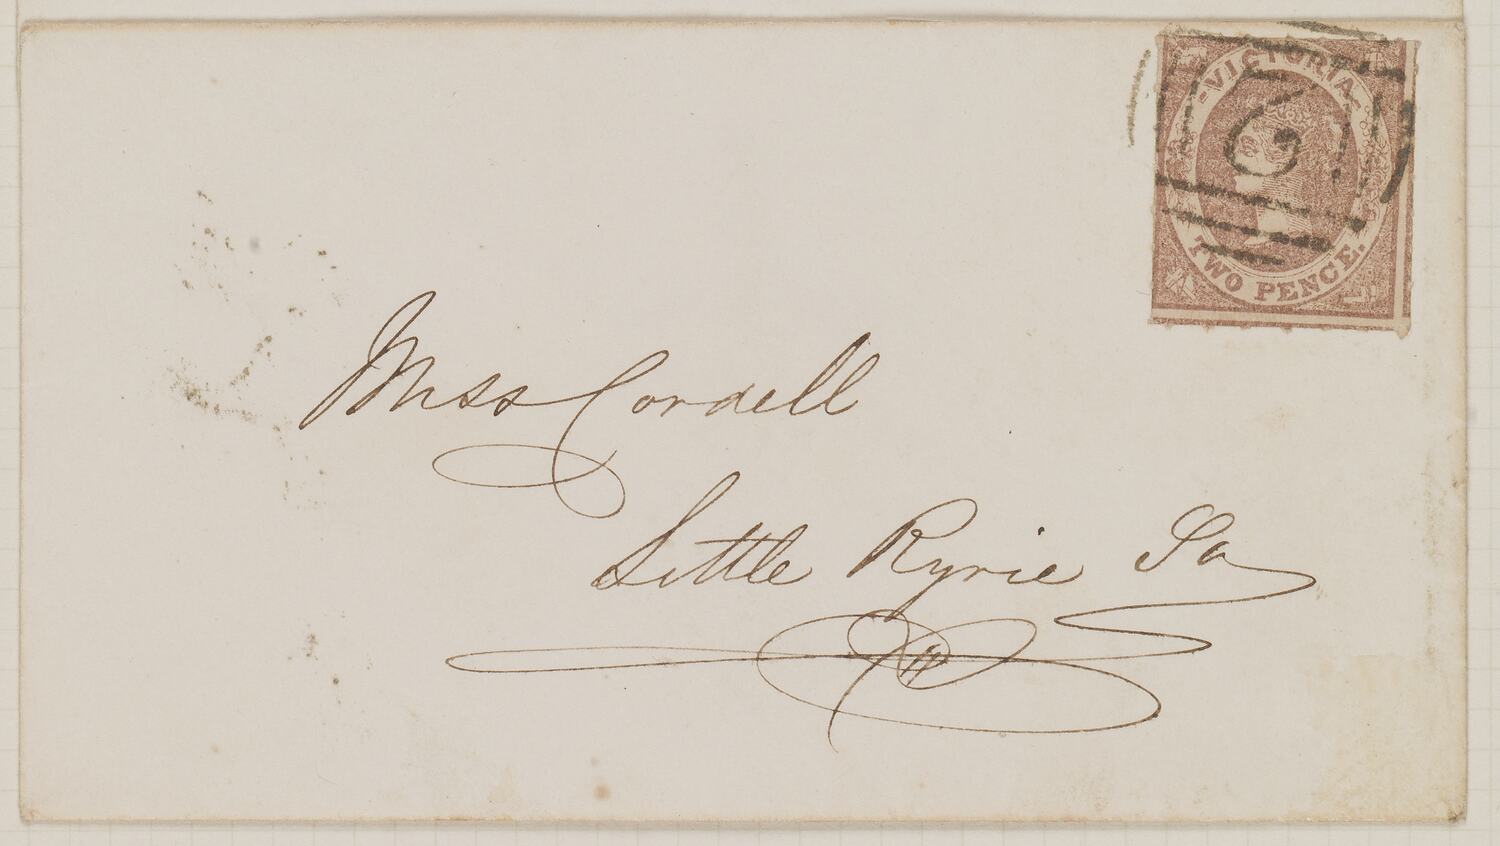 VICTORIA
TWO PENCE.
Miss Cordell
Little Ryrie